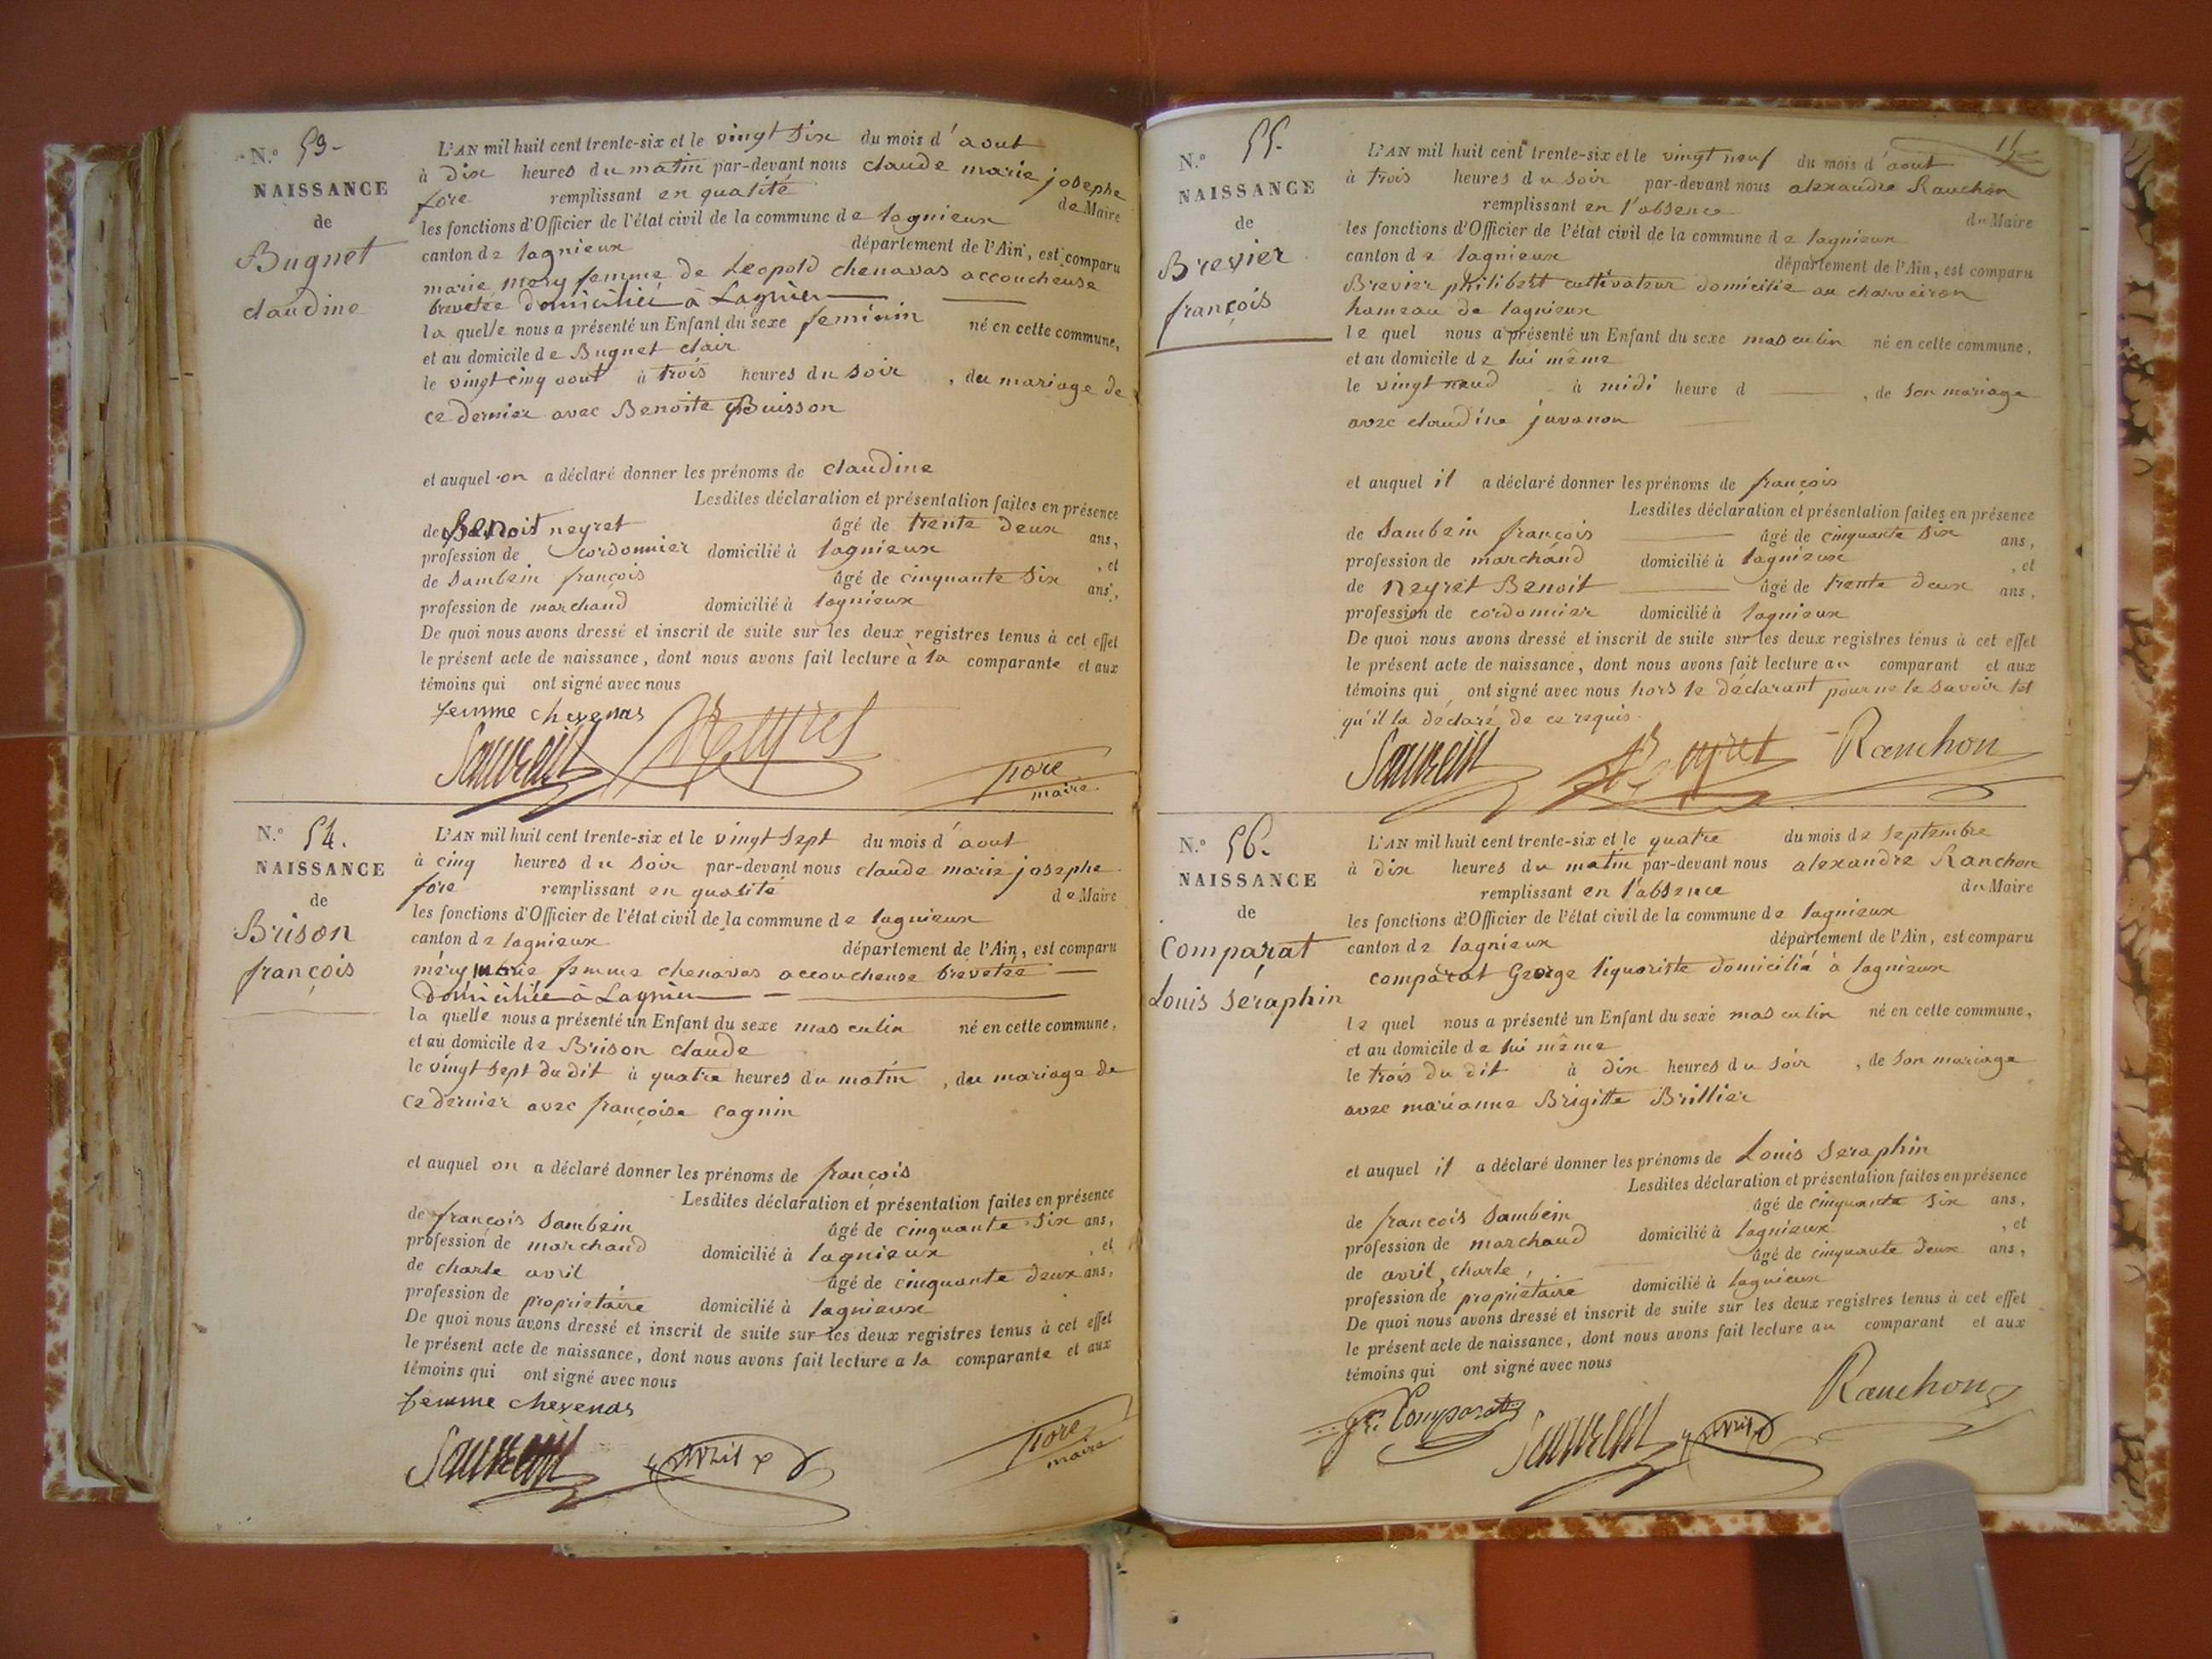 N.º 53.
NAISSANCE
de
Bugnet
claudine
L'AN mil huit cent trente-six et le vingt six du mois d'aout
à dix heures du matin par-devant nous claude marie josephe
fore remplissant en qualité de Maire
les fonctions d'Officier de l'état civil de la commune de lagnieux
canton de lagnieux département de l'Ain, est comparu
marie mery femme de Leopold chenavas accoucheuse
brevetée domiciliée à Lagnieu
la quelle nous a présenté un Enfant du sexe feminin né en cette commune,
et au domicile de Bugnet clair
le vingt cinq aout à trois heures du soir, du mariage de
ce dernier avec Benoite Buisson
et auquel on a déclaré donner les prénoms de claudine
Lesdites déclaration et présentation faites en présence
de Benoit neyret âgé de trente deux ans,
profession de cordonnier domicilié à lagnieux, et
de Sambein françois âgé de cinquante six ans,
profession de marchand domicilié à lagnieux
De quoi nous avons dressé et inscrit de suite sur les deux registres tenus à cet effet
le présent acte de naissance, dont nous avons fait lecture à la comparante et aux
témoins qui ont signé avec nous
femme chevenas
Neyret
fore
maire
N.º 54.
NAISSANCE
de
Brison
françois
L'AN mil huit cent trente-six et le vingt sept du mois d'aout
à cinq heures du soir par-devant nous claude marie josephe
fore remplissant en qualité de Maire
les fonctions d'Officier de l'état civil de la commune de lagnieux
canton de lagnieux département de l'Ain, est comparu
méry marie femme chenavas accoucheuse brevetée
domiciliée à Lagnieu
la quelle nous a présenté un Enfant du sexe masculin né en cette commune,
et au domicile de Brison claude
le vingt sept du dit à quatre heures du matin, du mariage de
ce dernier avec françoise cagnin
et auquel on a déclaré donner les prénoms de françois
Lesdites déclaration et présentation faites en présence
de françois Sambein âgé de cinquante six ans,
profession de marchand domicilié à lagnieux, et
de charle avril âgé de cinquante deux ans,
profession de propriétaire domicilié à lagnieux
De quoi nous avons dressé et inscrit de suite sur les deux registres tenus à cet effet
le présent acte de naissance, dont nous avons fait lecture a la comparante et aux
témoins qui ont signé avec nous
femme chevenas
avril
fore
maire
N.º 55.
NAISSANCE
de
Brevier
françois
L'AN mil huit cent trente-six et le vingt neuf du mois d'aout
à trois heures du soir par-devant nous alexandre Ranchon
remplissant en l'absence du Maire
les fonctions d'Officier de l'état civil de la commune de lagnieux
canton de lagnieux département de l'Ain, est comparu
Brevier philibert cultivateur domicilié au charveiron
hameau de lagnieux
le quel nous a présenté un Enfant du sexe masculin né en cette commune,
et au domicile de lui même
le vingt neud à midi heure d, de son mariage
avec claudine juvanon
et auquel il a déclaré donner les prénoms de françois
Lesdites déclaration et présentation faites en présence
de Sambein françois âgé de cinquante six ans,
profession de marchand domicilié à lagnieux, et
de neyret Benoit âgé de trente deux ans,
profession de cordonnier domicilié à lagnieux
De quoi nous avons dressé et inscrit de suite sur les deux registres tenus à cet effet
le présent acte de naissance, dont nous avons fait lecture au comparant et aux
témoins qui ont signé avec nous hors le déclarant pour ne le savoir tel
qu'il la déclaré de ce requis.
Neyret Ranchon
N.º 56.
NAISSANCE
de
Comparat
Louis Séraphin
L'AN mil huit cent trente-six et le quatre du mois de Septembre
à dix heures du matin par-devant nous alexandre Ranchon
remplissant en l'absence du Maire
les fonctions d'Officier de l'état civil de la commune de lagnieux
canton de lagnieux département de l'Ain, est comparu
comparat George liquoriste domicilié à lagnieux
le quel nous a présenté un Enfant du sexe masculin né en cette commune,
et au domicile de lui même
le trois du dit à dix heures du soir, de son mariage
avec marianne Brigitte Brillier
et auquel il a déclaré donner les prénoms de Louis Seraphin
Lesdites déclaration et présentation faites en présence
de françois Sambein âgé de cinquante six ans,
profession de marchand domicilié à lagnieux, et
de avril charle, âgé de cinquante deux ans,
profession de propriétaire domicilié à lagnieux
De quoi nous avons dressé et inscrit de suite sur les deux registres tenus à cet effet
le présent acte de naissance, dont nous avons fait lecture au comparant et aux
témoins qui ont signé avec nous
Ranchon
Comparat avril